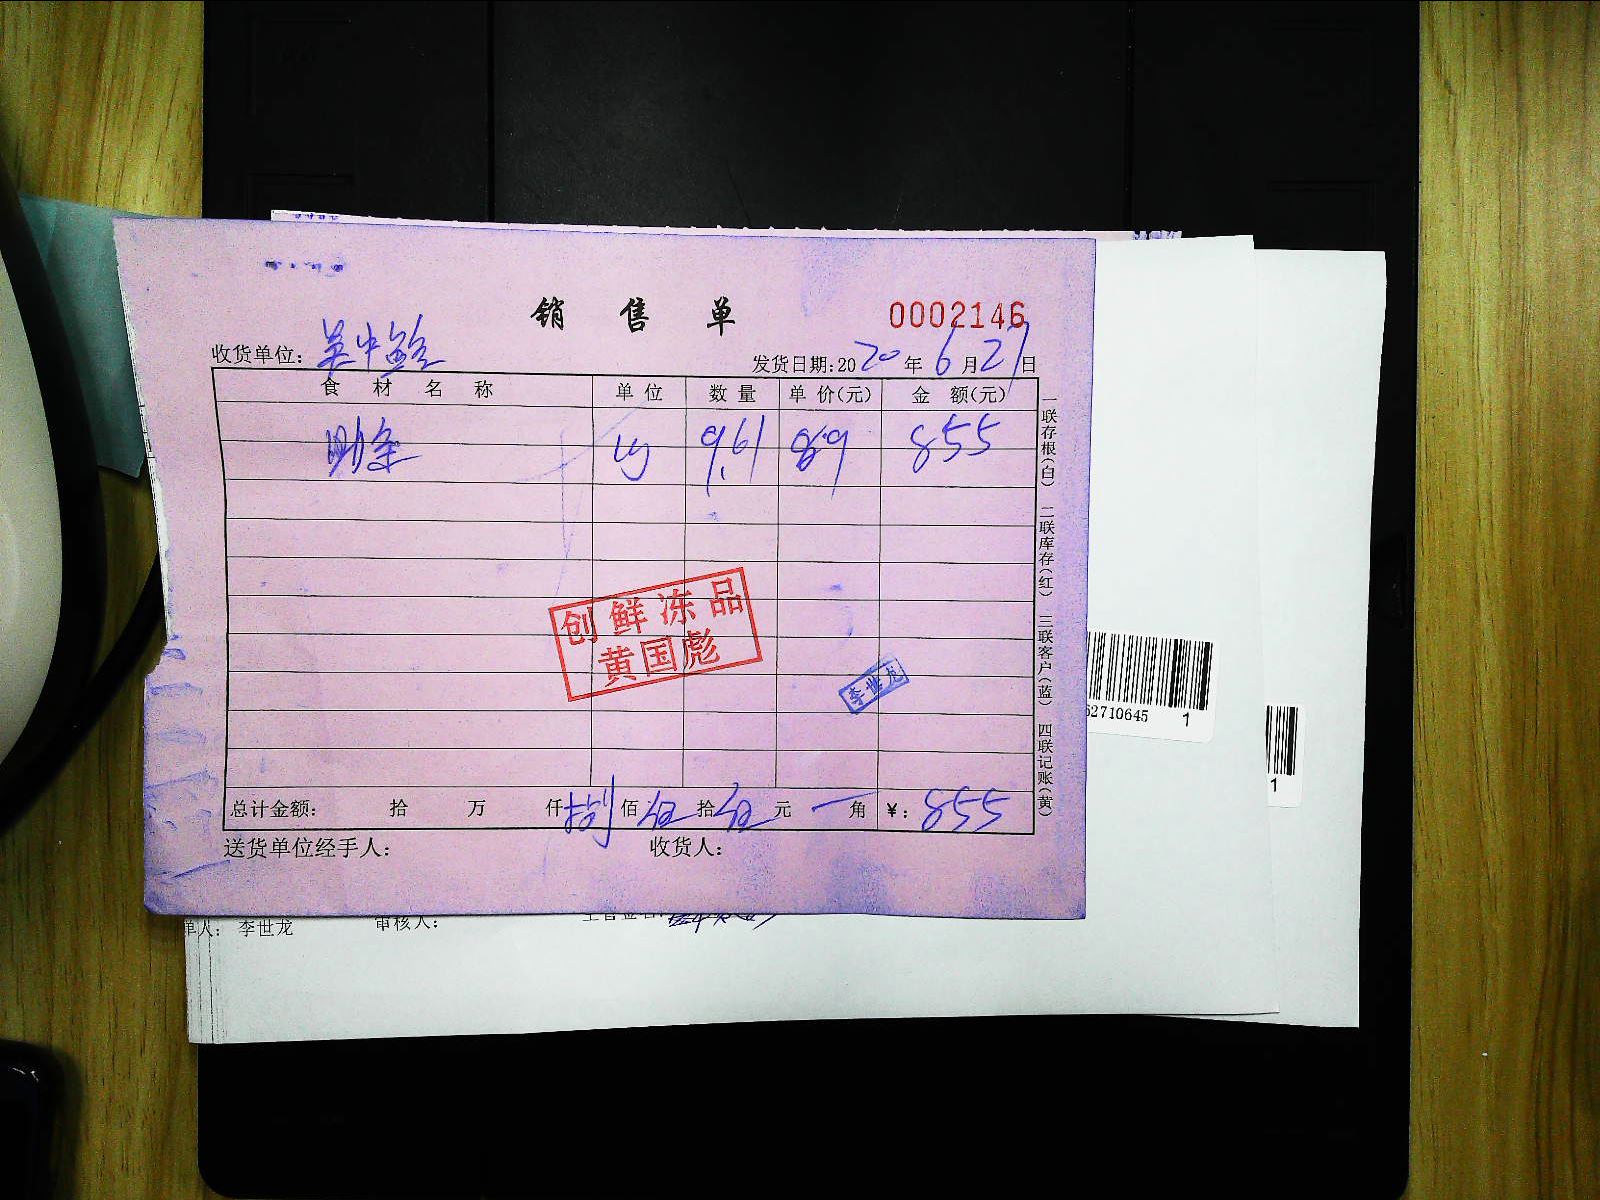 销 售 单
0002146
收货单位：
发货日期：2020 年 6 月 27 日
食 材 名 称 单 位 数 量 单 价(元) 金 额(元)
肋条 kg 9.61 89 855
创鲜冻品
黄国彪
李世龙
总计金额： 拾 万 仟 捌 佰 伍 拾 伍 元 一 角 ￥：855
送货单位经手人： 收货人：
一联存根(白) 二联库存(红) 三联客户(蓝) 四联记账(黄)
52710645 1
1
单人： 李世龙 审核人：